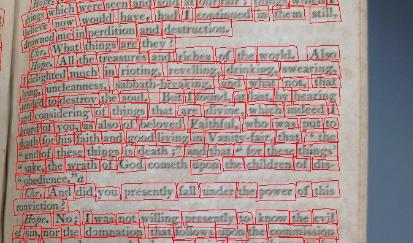 things which were seen and sold at our fair; things which I
believe now would have, had I continued in them still,
drowned me in perdition and destruction.
Chr. What things are they?
Hope. All the treasures and riches of the world. Also
I delighted much in rioting, revelling, drinking, swearing,
lying, uncleanness, sabbath-breaking, and what not, that
tended to destroy the soul. But I found, at last, by hearing
and considering of things that are divine, which indeed I
heard of you, as also of beloved Faithful, who was put to
death for his faith and good living in Vanity-fair, that “ the
“ end of these things is death;” and that “ for these things’
“ sake, the wrath of God cometh upon the children of dis-
“obedience.”a
Chr. And did you presently fall under the power of this
conviction?
Hope. No; I was not willing presently to know the evil
of sin, nor the damnation that follows upon the commission